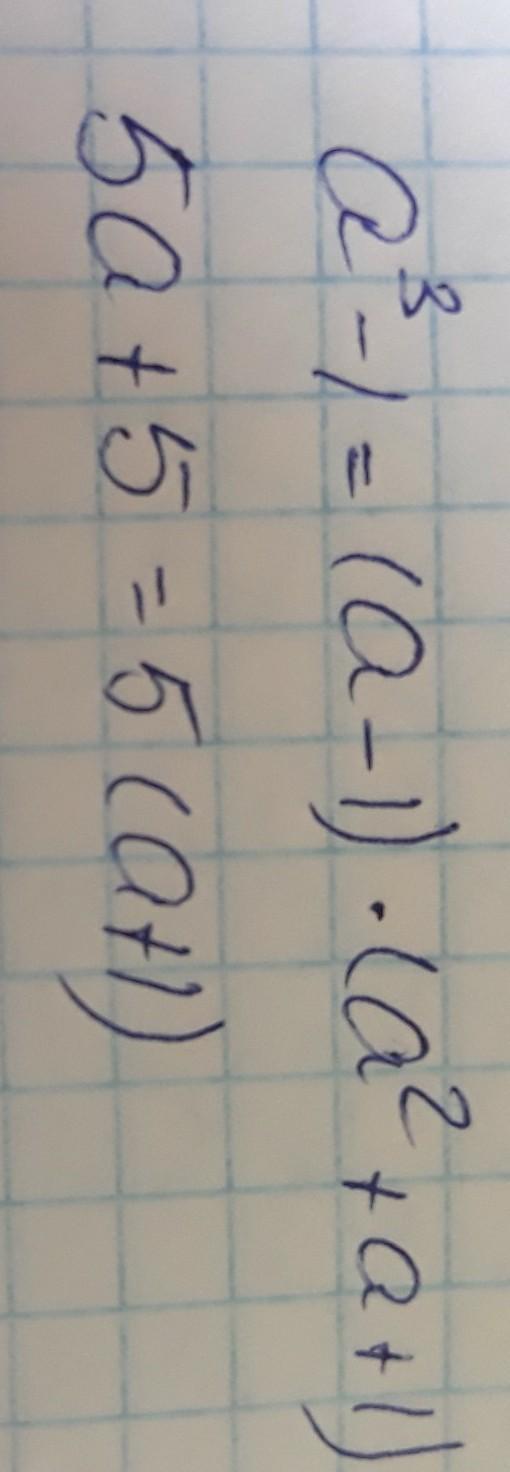 a³ - 1 = (a - 1) · (a² + a + 1)
5a + 5 = 5(a + 1)